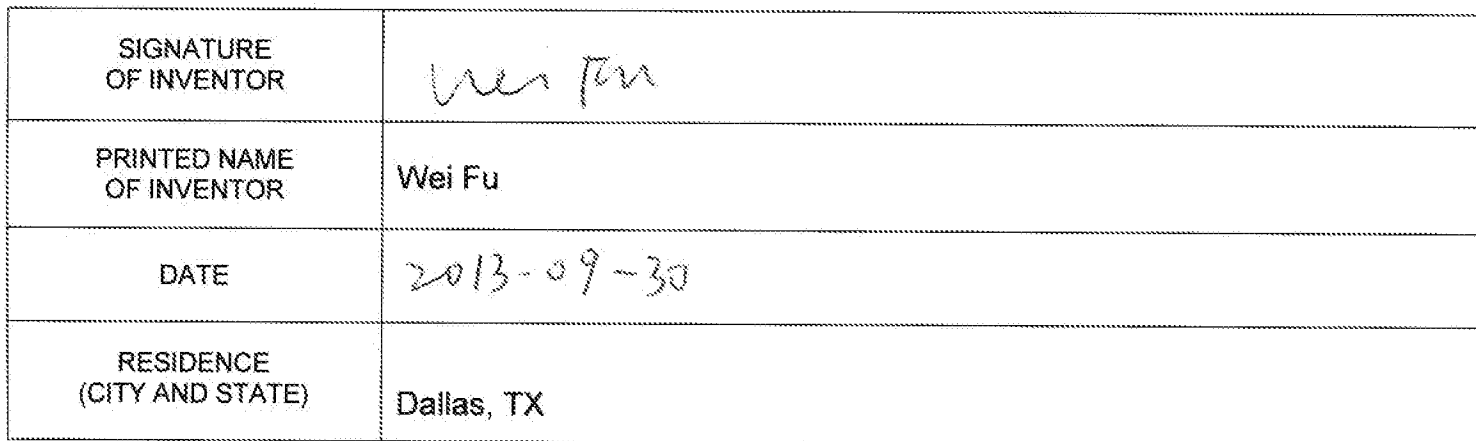 SIGNATURE
OF INVENTOR
Wei Fu
PRINTED NAME
OF INVENTOR
Wei Fu
DATE
2013-09-30
RESIDENCE
(CITY AND STATE)
Dallas, TX